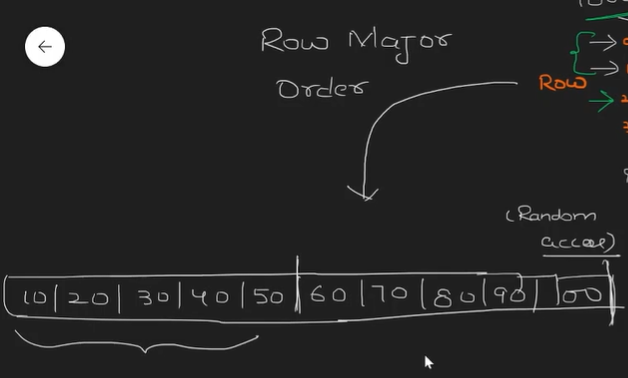 Row Major
Order
Row
(Random
access)
10 | 20 | 30 | 40 | 50 | 60 | 70 | 80 | 90 | 100